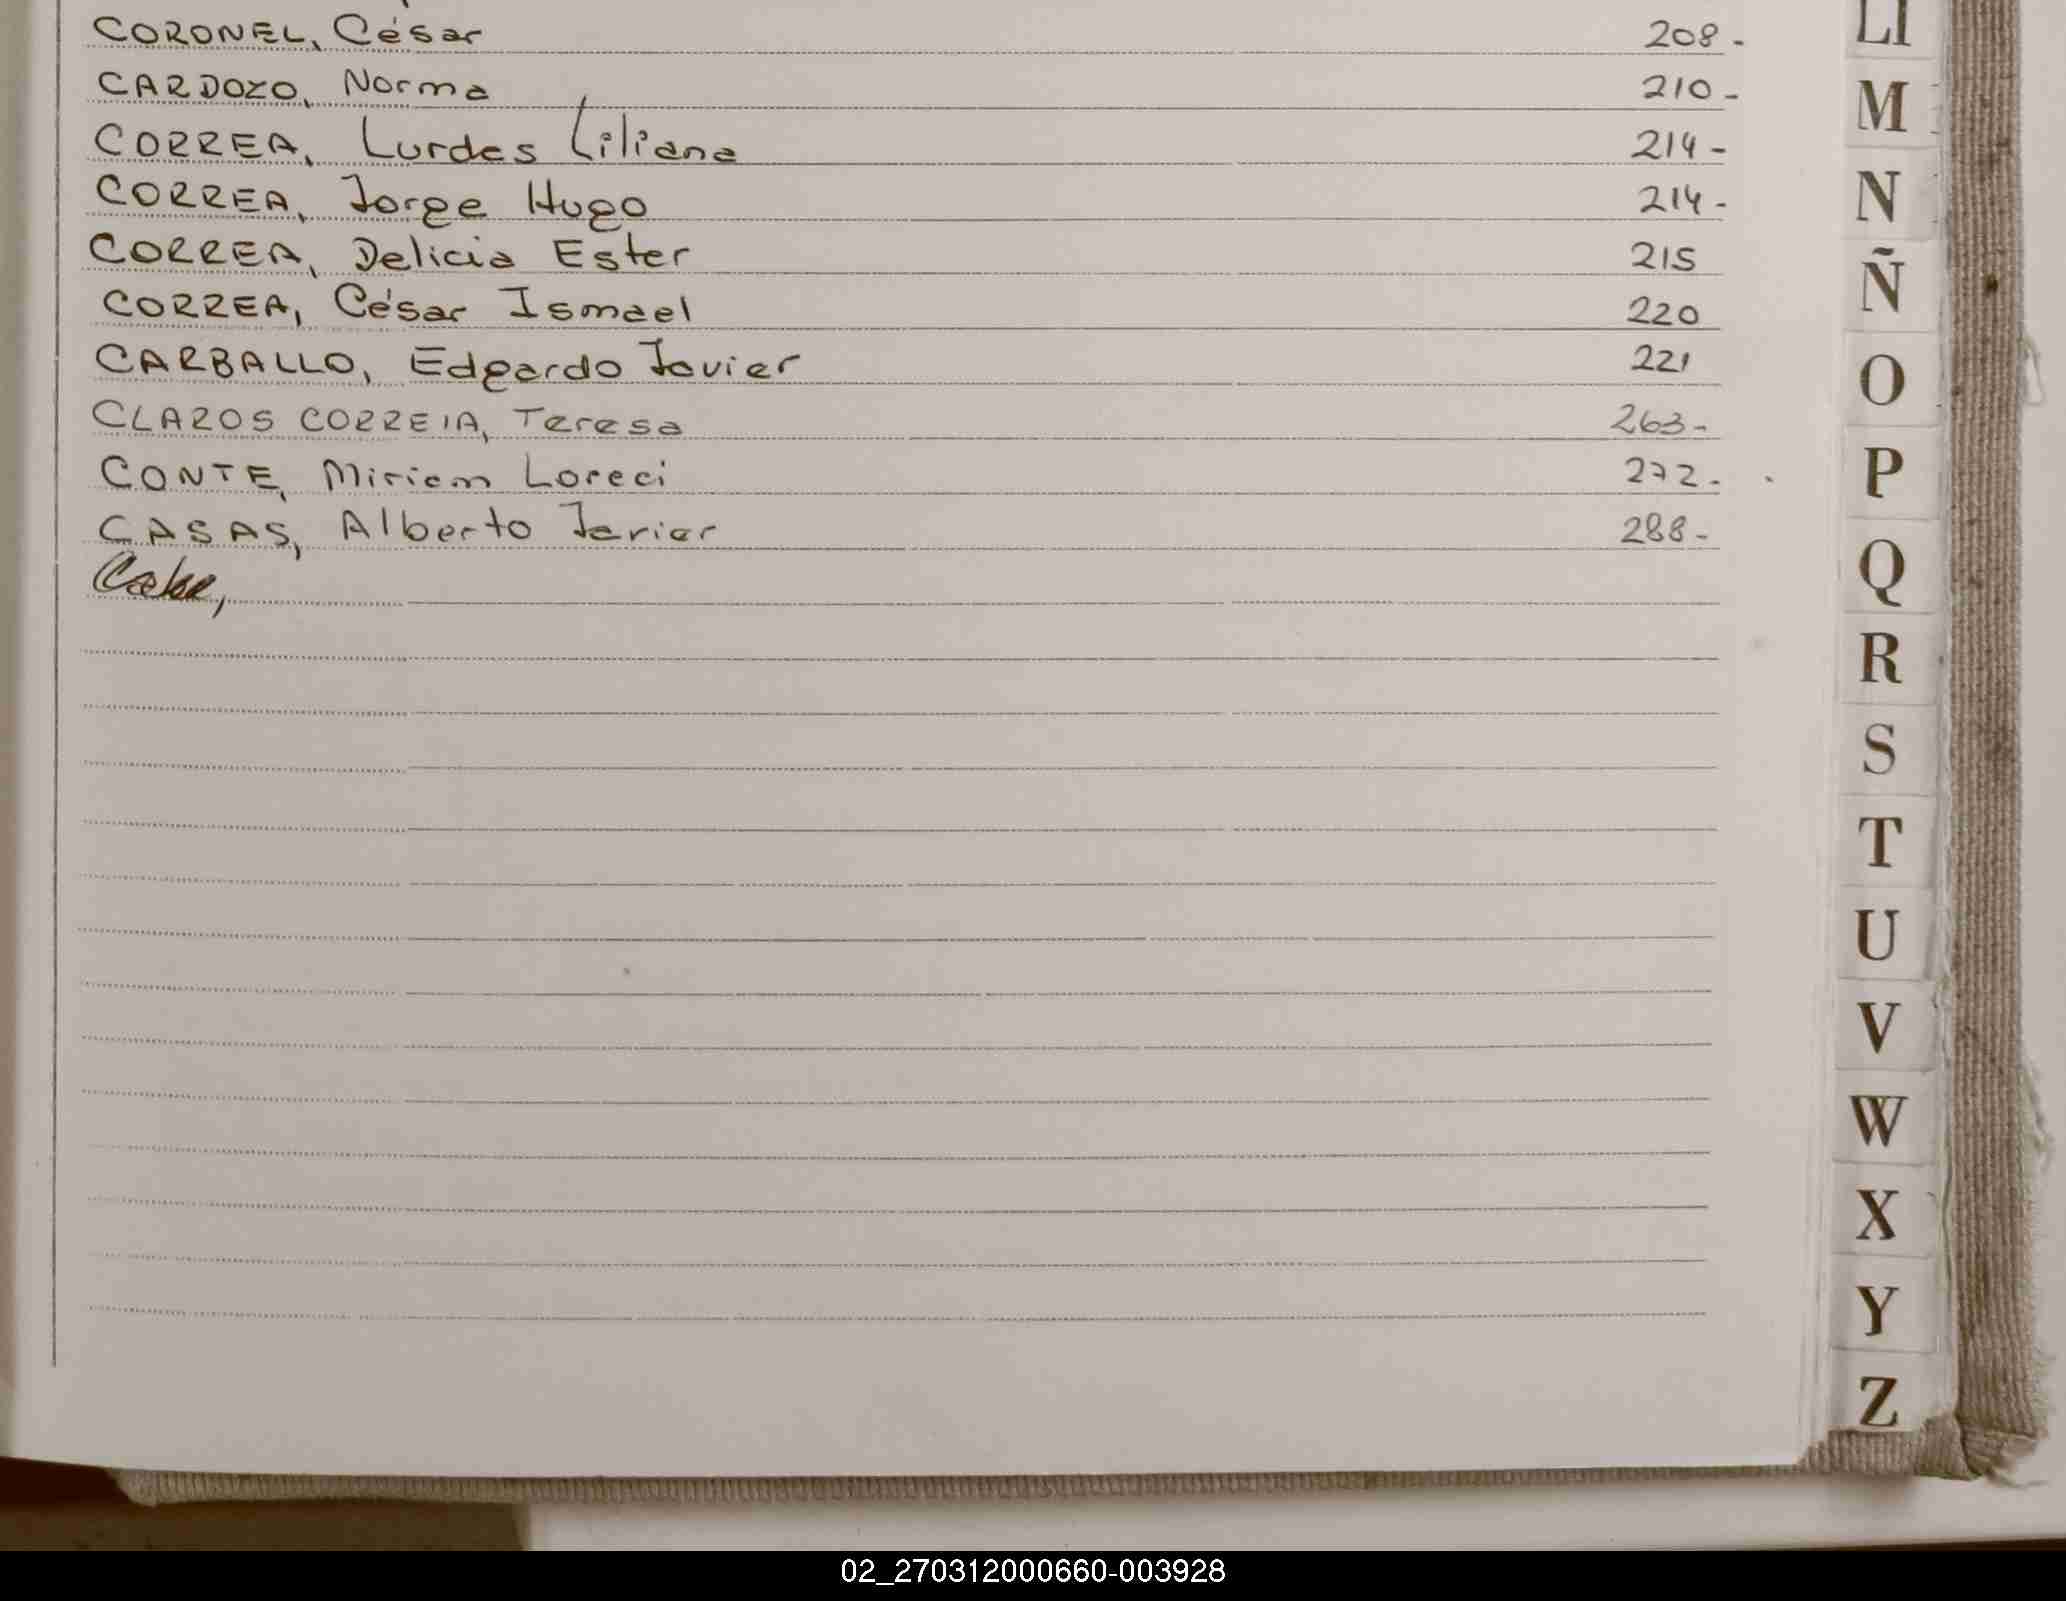 CORONEL, César 208-
CARDOZO, Norma 210-
CORREA, Lurdes Liliana 214-
CORREA, Jorge Hugo 214-
CORREA, Delicia Ester 215
CORREA, César Ismael 220
CARBALLO, Edgardo Javier 221
CLAROS CORREIA, Teresa 263-
CONTE, Miriam Loreci 272-
CASAS, Alberto Javier 288-
Ll
M
N
Ñ
O
P
Q
R
S
T
U
V
W
X
Y
Z
02_270312000660-003928